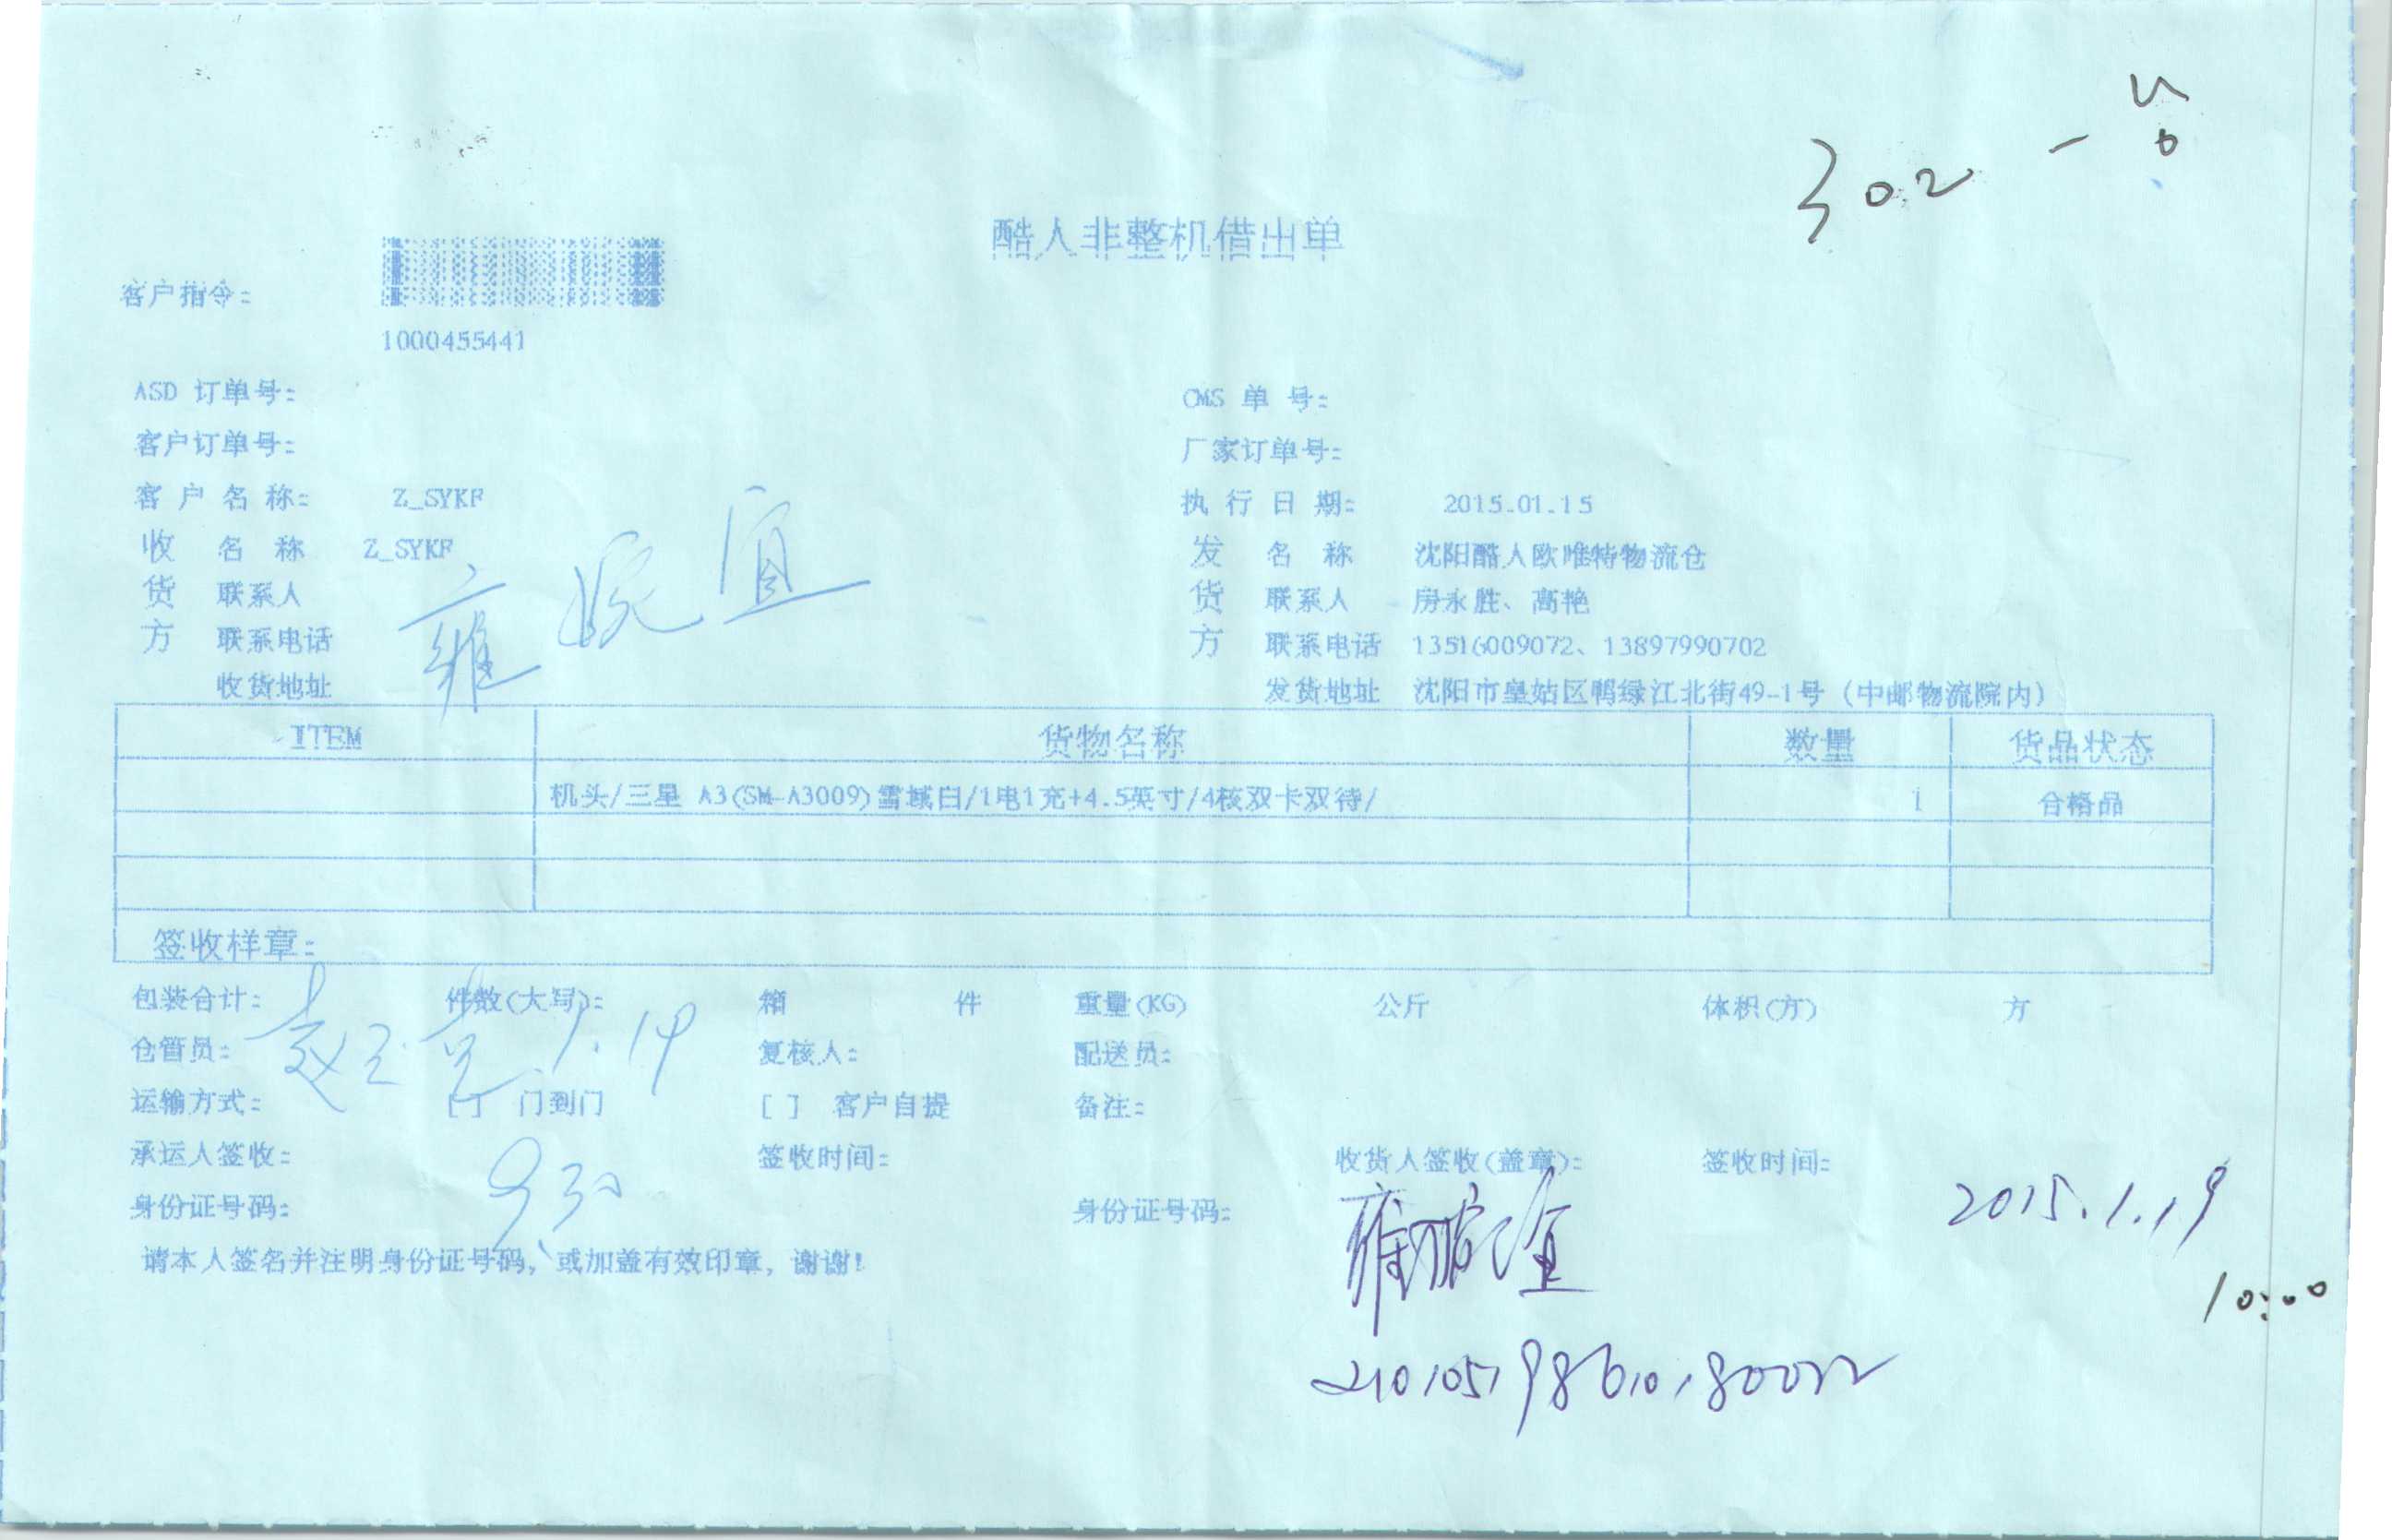 302 -
酷人非整机借出单
客户指令:
1000455441
ASD 订单号: CMS 单 号:
客户订单号: 厂家订单号:
客 户 名 称: Z_SYKF 执 行 日 期: 2015.01.15
收 名 称 Z_SYKF 发 名 称 沈阳酷人欧唯特物流仓
货 联系人 货 联系人 房永胜、高艳
方 联系电话 方 联系电话 13516009072、13897990702
收货地址 发货地址 沈阳市皇姑区鸭绿江北街49-1号 (中邮物流院内)
ITEM 货物名称 数量 货品状态
机头/三星 A3(SM-A3009)雪域白/1电1充+4.5英寸/4核双卡双待/ 1 合格品
签收样章:
包装合计: 件数(大写): 箱 件 重量(KG) 公斤 体积(方) 方
仓管员: 1.19 复核人: 配送员:
运输方式: [ ] 门到门 [ ] 客户自提 备注:
承运人签收: 签收时间: 收货人签收(盖章): 签收时间:
930
2015.1.19
身份证号码: 身份证号码:
10:00
请本人签名并注明身份证号码、或加盖有效印章，谢谢!